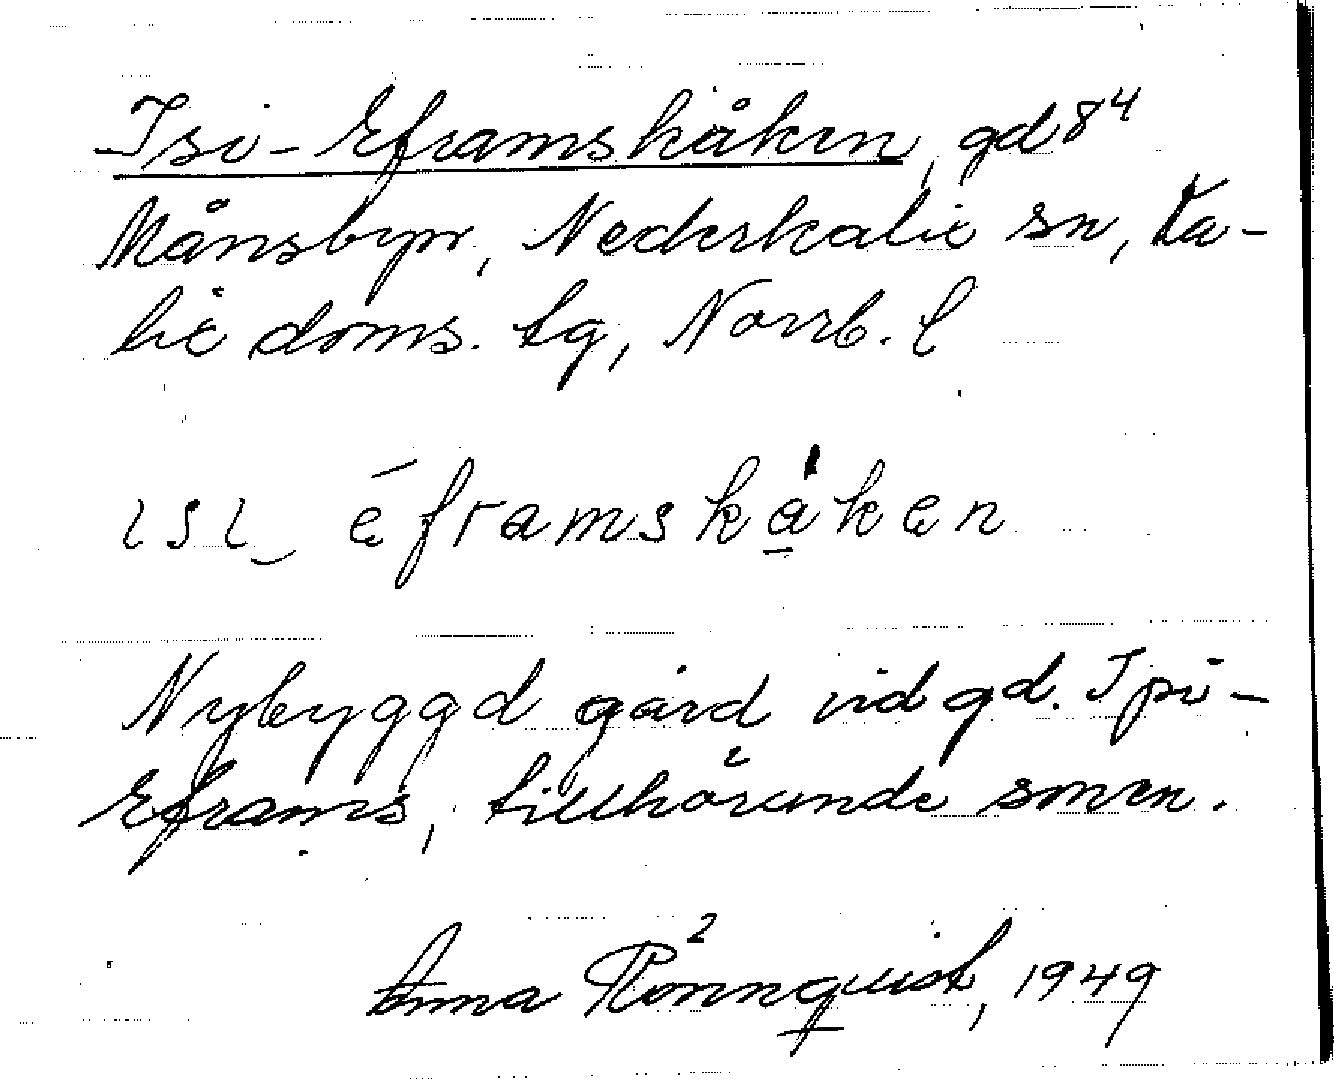 Isi-Eframskåken, gd 8⁴
Månsbyn, Nederkalix sn, Ka-
lix doms. tg, Norrb. l
ɩsɩ‿ ēframskåken
Nybyggd gård vid gd. Ipi-
Eframs, tillhörande sonen.
Anna Rönnquist, 1949